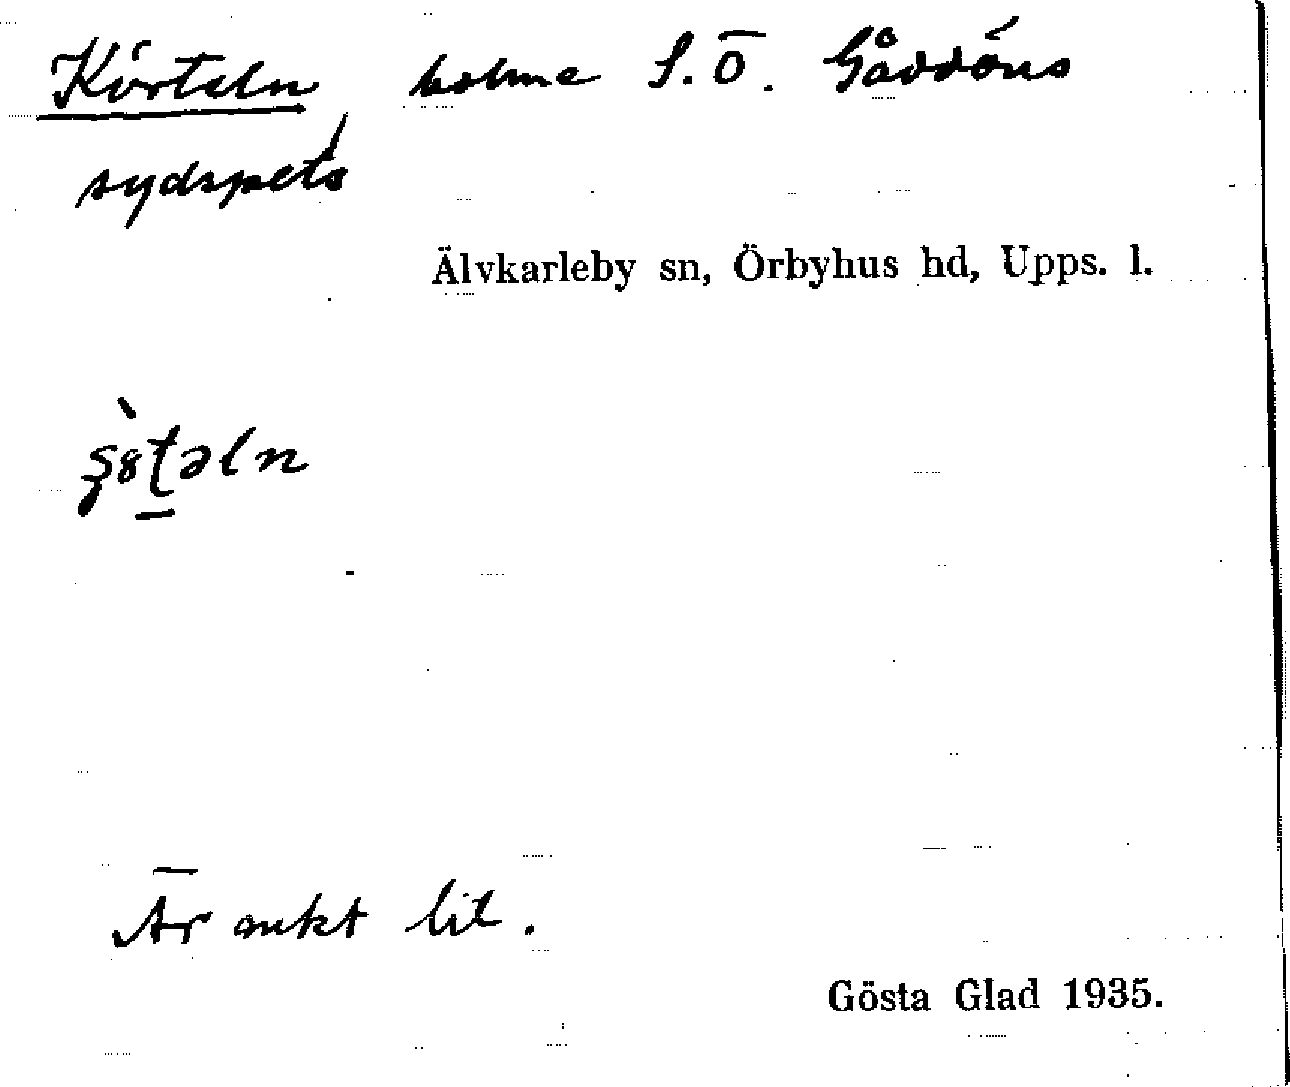 Körteln holme S.Ö. Gåddöns
sydspets
Älvkarleby sn, Örbyhus hd, Upps. l.
Är mkt lit.
Gösta Glad 1935.